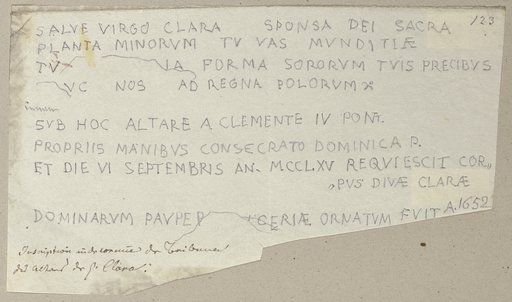 123
SALVE VIRGO CLARA SPONSA DEI SACRA
PLANTA MINORVM TV VAS MVNDITIÆ
TV VIA FORMA SORORVM TVIS PRECIBVS
VC NOS AD REGNA POLORVM
SVB HOC ALTARE A CLEMENTE IV PONT.
PROPRIIS MANIBVS CONSECRATO DOMINICA P.
ET DIE VI SEPTEMBRIS AN. MCCLXV REQVIESCIT COR„
„PVS DIVÆ CLARÆ
DOMINARVM PAVPER GERIÆ ORNATVM FVIT A. 1652
Inscription der Tribunen
des Altars der S. Clara.